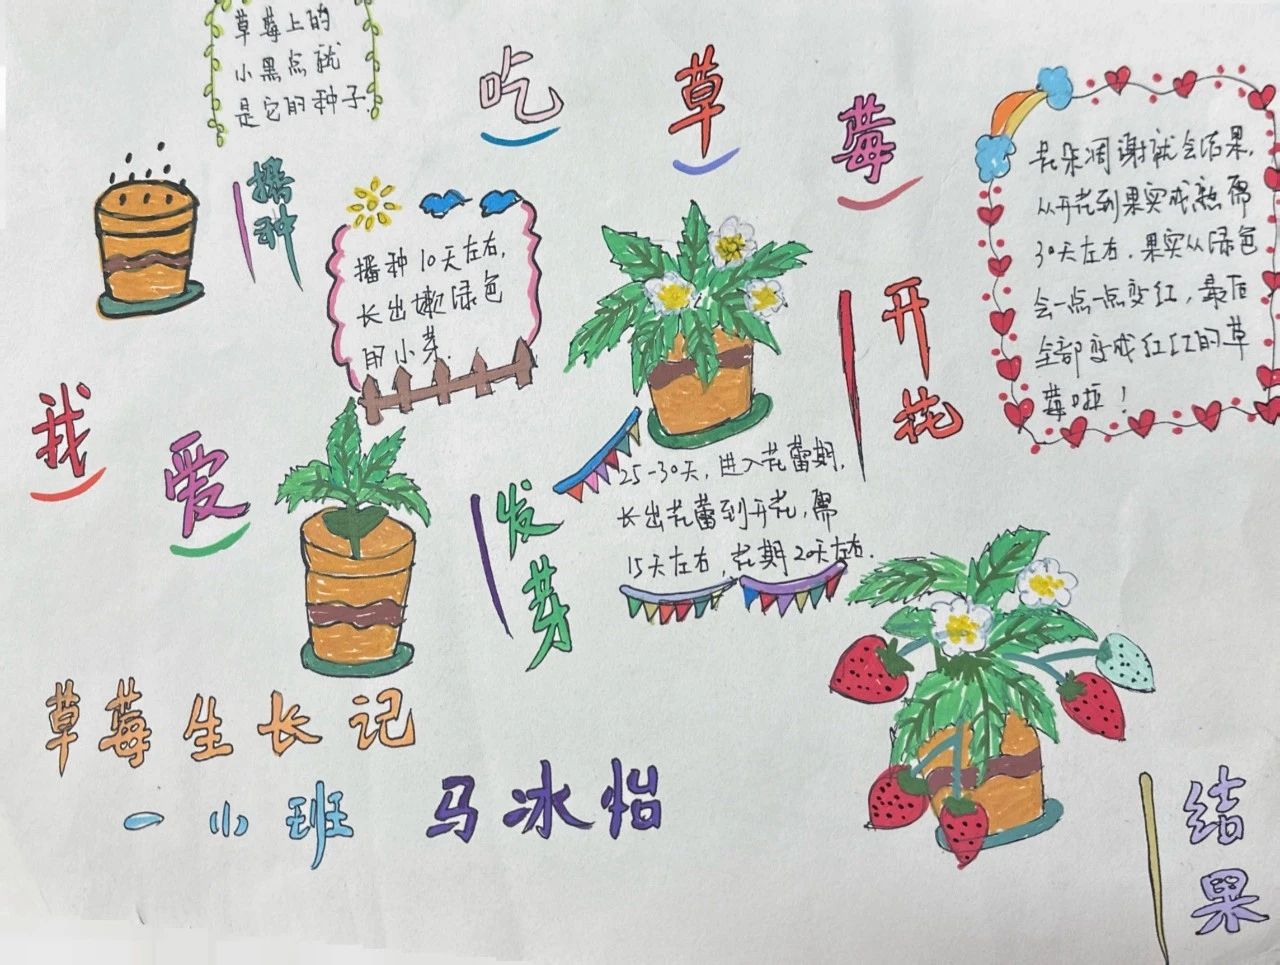 草莓上的
小黑点就
是它的种子.
吃草莓
播种
播种10天左右,
长出嫩绿色
的小芽.
花朵凋谢就会结果,
从开花到果实成熟需
30天左右.果实从绿色
会一点一点变红,最后
全部变成红红的草
莓啦!
开花
我爱
25-30天,进入花蕾期,
长出花蕾到开花,需
15天左右,花期20天左右.
发芽
草莓生长记
一小班 马冰怡
结果